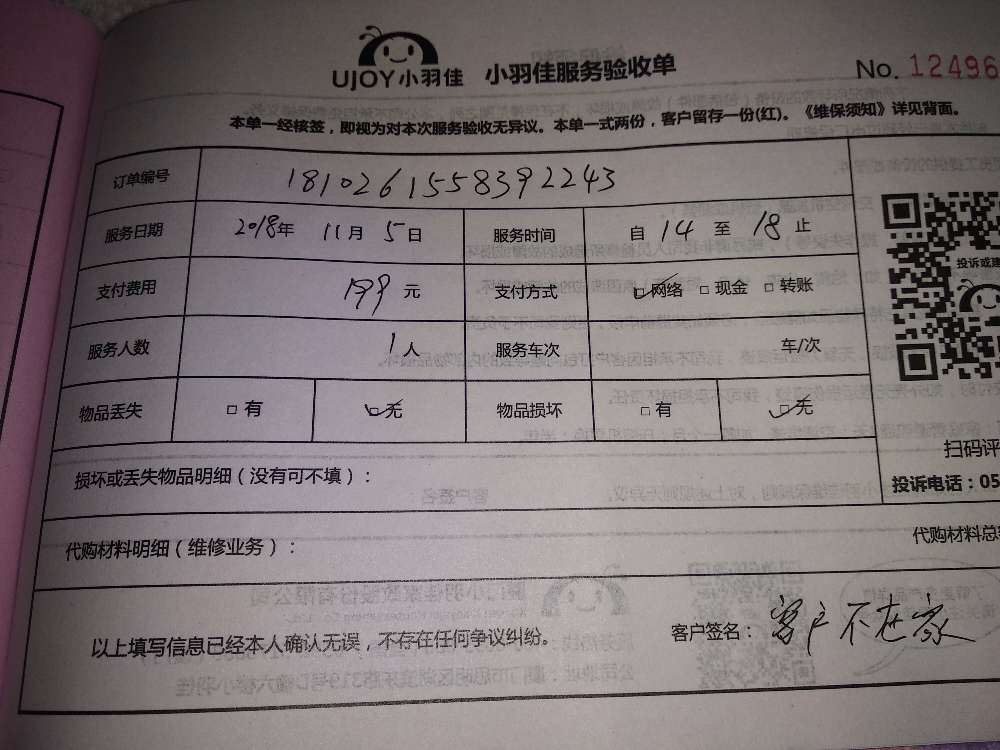 UJOY小羽佳 小羽佳服务验收单 No. 12496
本单一经核签，即视为对本次服务验收无异议。本单一式两份，客户留存一份(红)。《维保须知》详见背面。
订单编号 1810261558392243
服务日期 2018年 11月 5日 服务时间 自 14 至 18 止
投诉或建
支付费用 199 元 支付方式 ☑网络 □现金 □转账
服务人数 1人 服务车次 车/次
物品丢失 □有 ☑无 物品损坏 □有 ☑无
扫码评
损坏或丢失物品明细（没有可不填）：
投诉电话：05
代购材料明细（维修业务）： 代购材料总
以上填写信息已经本人确认无误，不存在任何争议纠纷。 客户签名：客户不在家